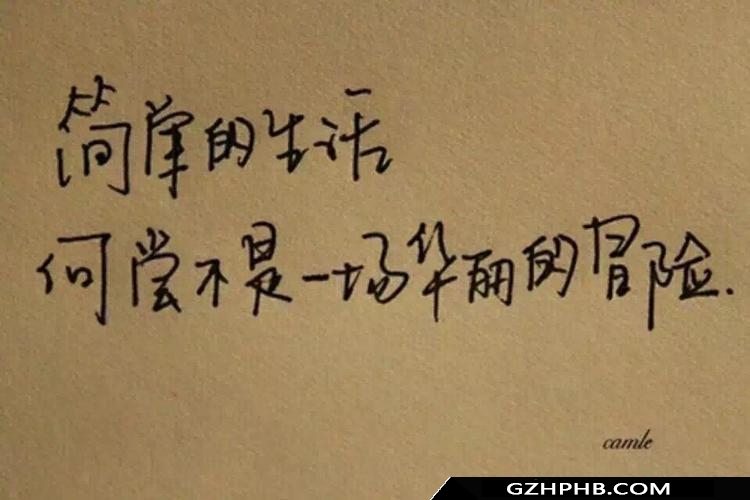 简单的生活
何尝不是一场华丽的冒险.
camle
GZHPHB.COM